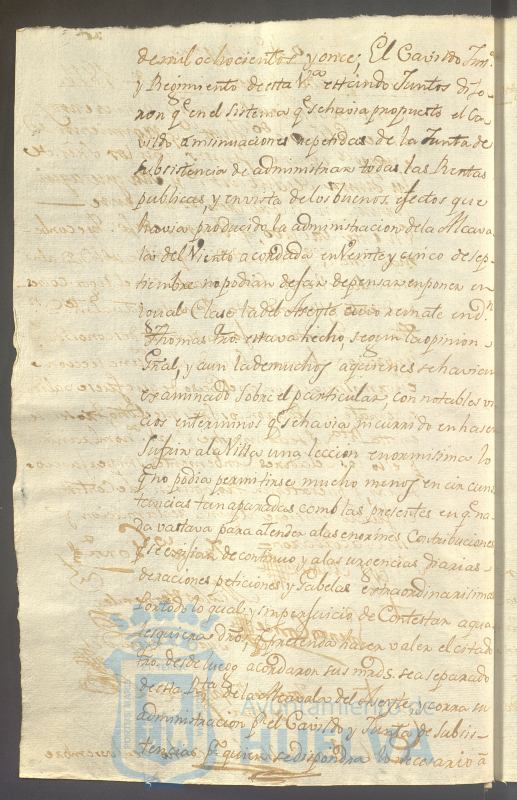 de mil ochocientos y once; El Cavildo Just.ª
y Regimiento de esta V.ª estando Juntos dije-
ron q.e en el sistema q.e se havia propuesto el Ca-
vildo a insinuaciones repetidas de la Junta de
subsistencia de administrar todas las Rentas
publicas, y en vista de los buenos efectos que
havia producido la administracion de la Alcava-
la del Viento acordada en Veinte y cinco de sep-
tiembre no podian dejar de pensar en poner en
igual Clase la del Aseyte cuio remate en D.n
Thomas estava hecho, segun la opinion
Gral, y aun la de muchos a quienes se havian
examinado sobre el particular, con notables vi-
cios en terminos q.e se havia incurrido en haser
sufrir a la Villa una leccion enormisima lo
q.e no podia permitirse mucho menos en circuns-
tancias tan apuradas como las presentes en q.e na-
da vastava para atender a las enormes Contribuciones
q.e se exijian de continuo y a las urgencias diarias
de raciones peticiones y Gabelas extraordinarisimas
Por todo lo qual y sin perjuicio de Contestar a qua-
lesquiera dro, q.e pretenda haser valer el citado
desde luego acordaron sus mrds. sea separado
de esta Rta de la Alcavala del Aseyte y corra su
administracion p.r el Cavildo y Junta de Subsis-
tencias p.r quien se dispondra lo necesario a
Ayuntamiento de
HUELVA